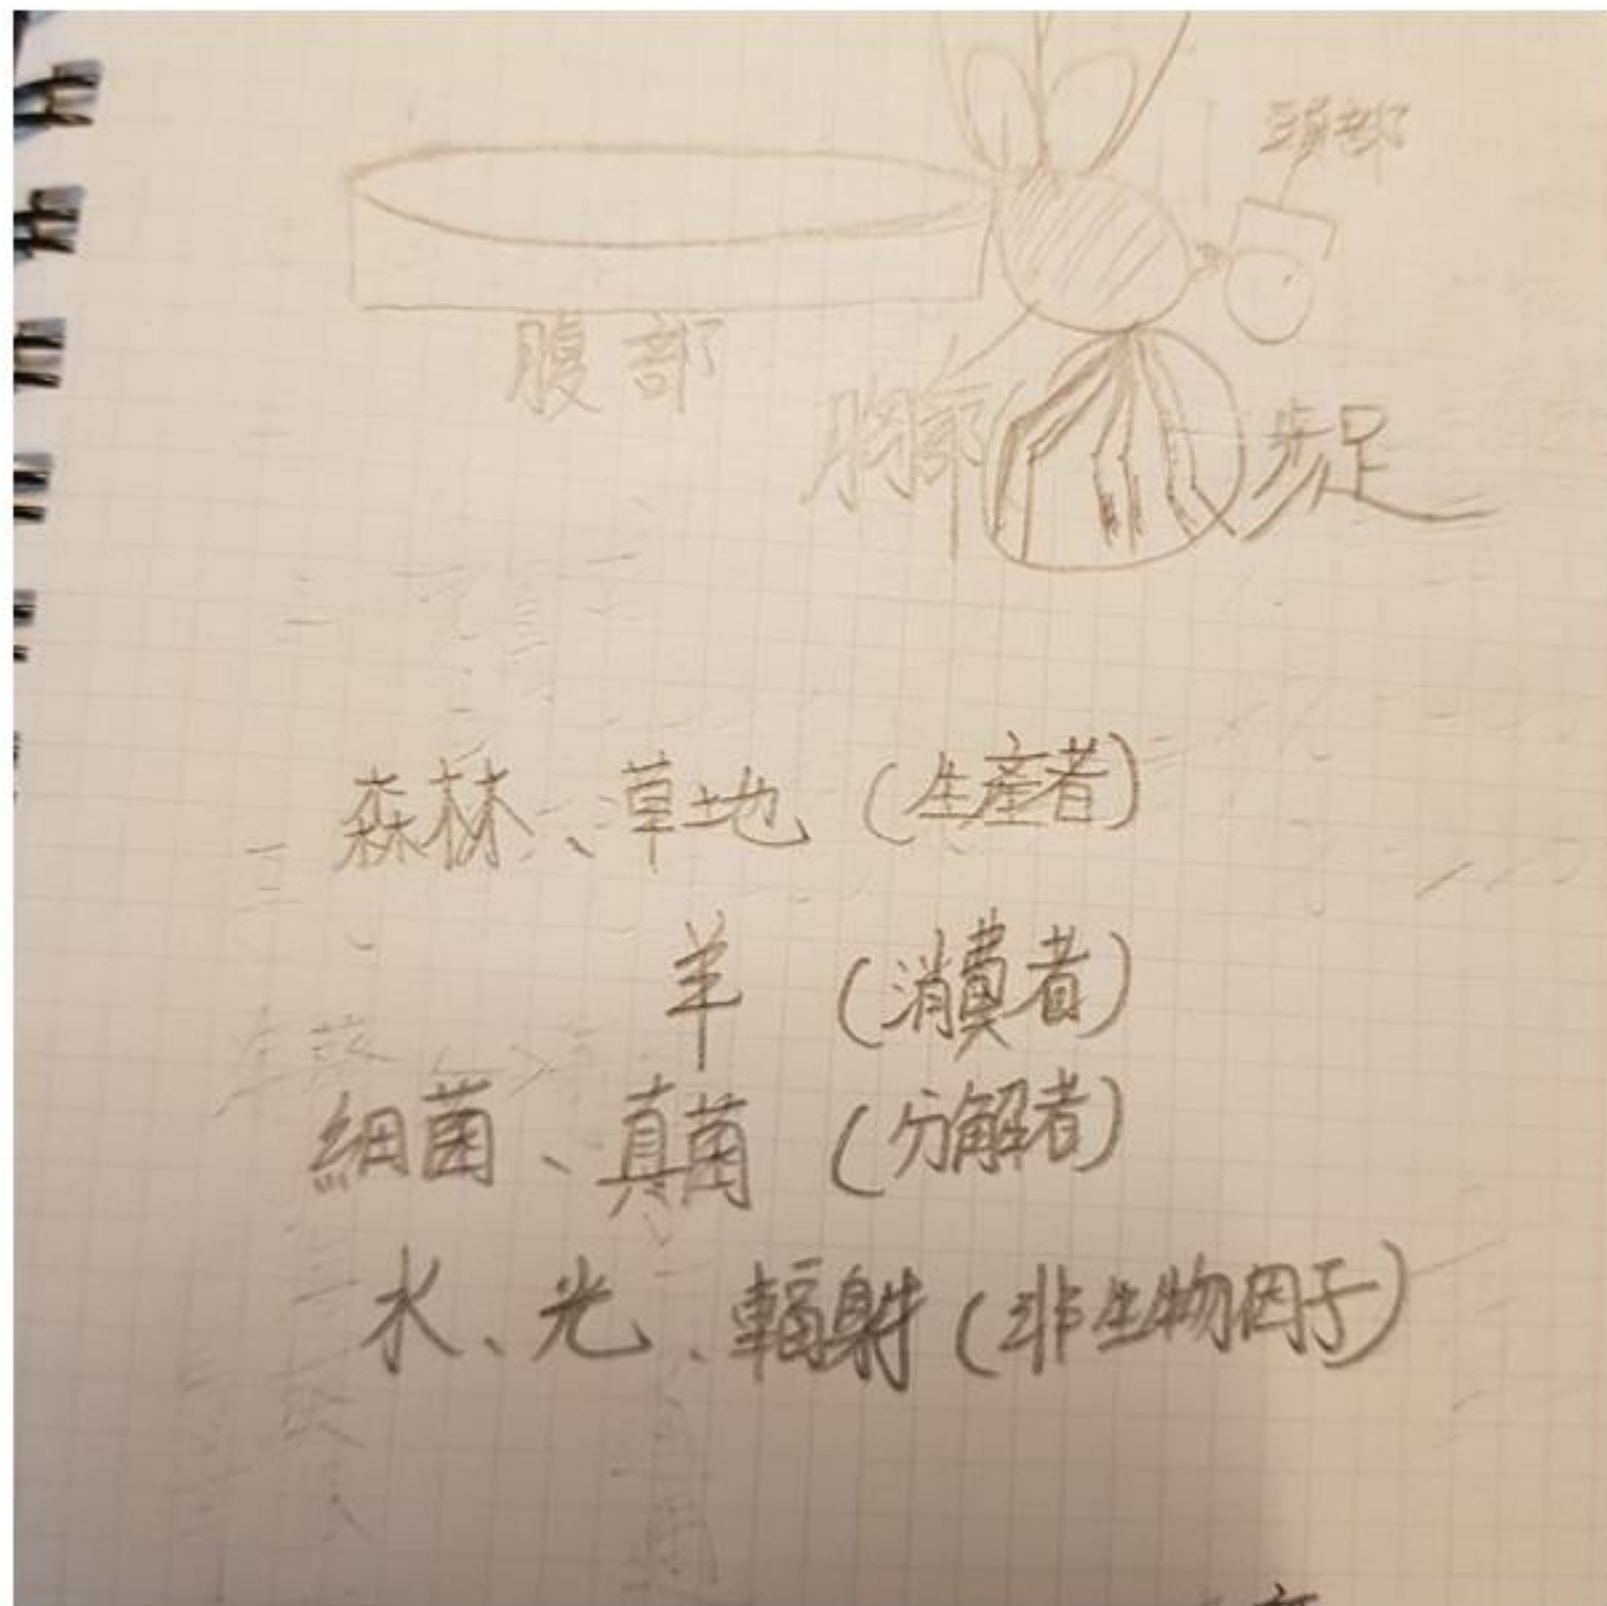 頭部
腹部
胸部
步足
森林、草地（生產者）
羊（消費者）
細菌、真菌（分解者）
水、光、輻射（非生物因子）